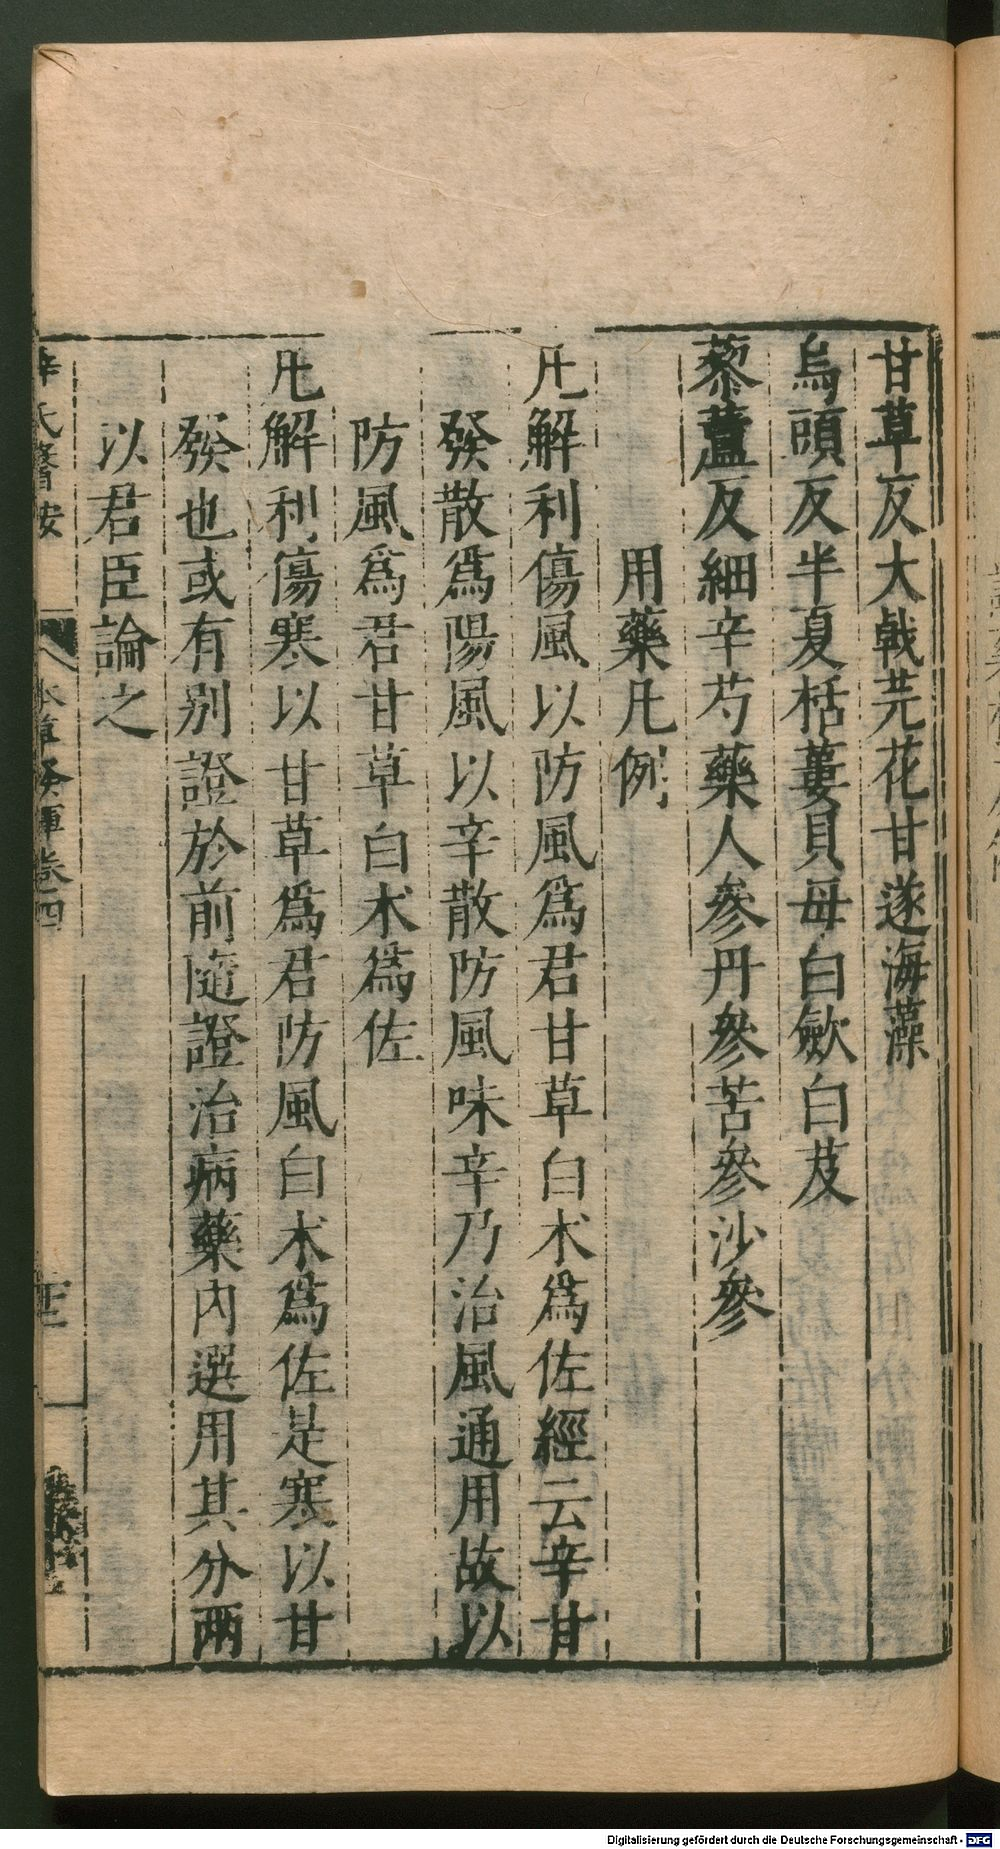 甘草反大戟芫花甘遂海藻
烏頭反半夏栝蔞貝母白歛白芨
藜蘆反細辛芍藥人參丹參苦參沙參
用藥凡例
凡解利傷風以防風爲君甘草白朮爲佐經云辛甘
發散爲陽風以辛散防風味辛乃治風通用故以
防風爲君甘草白朮爲佐
凡解利傷寒以甘草爲君防風白朮爲佐是寒以甘
發也或有别證於前隨證治病藥内選用其分兩
以君臣論之
薛氏醫按
本草發揮卷四
Digitalisierung gefördert durch die Deutsche Forschungsgemeinschaft - DFG